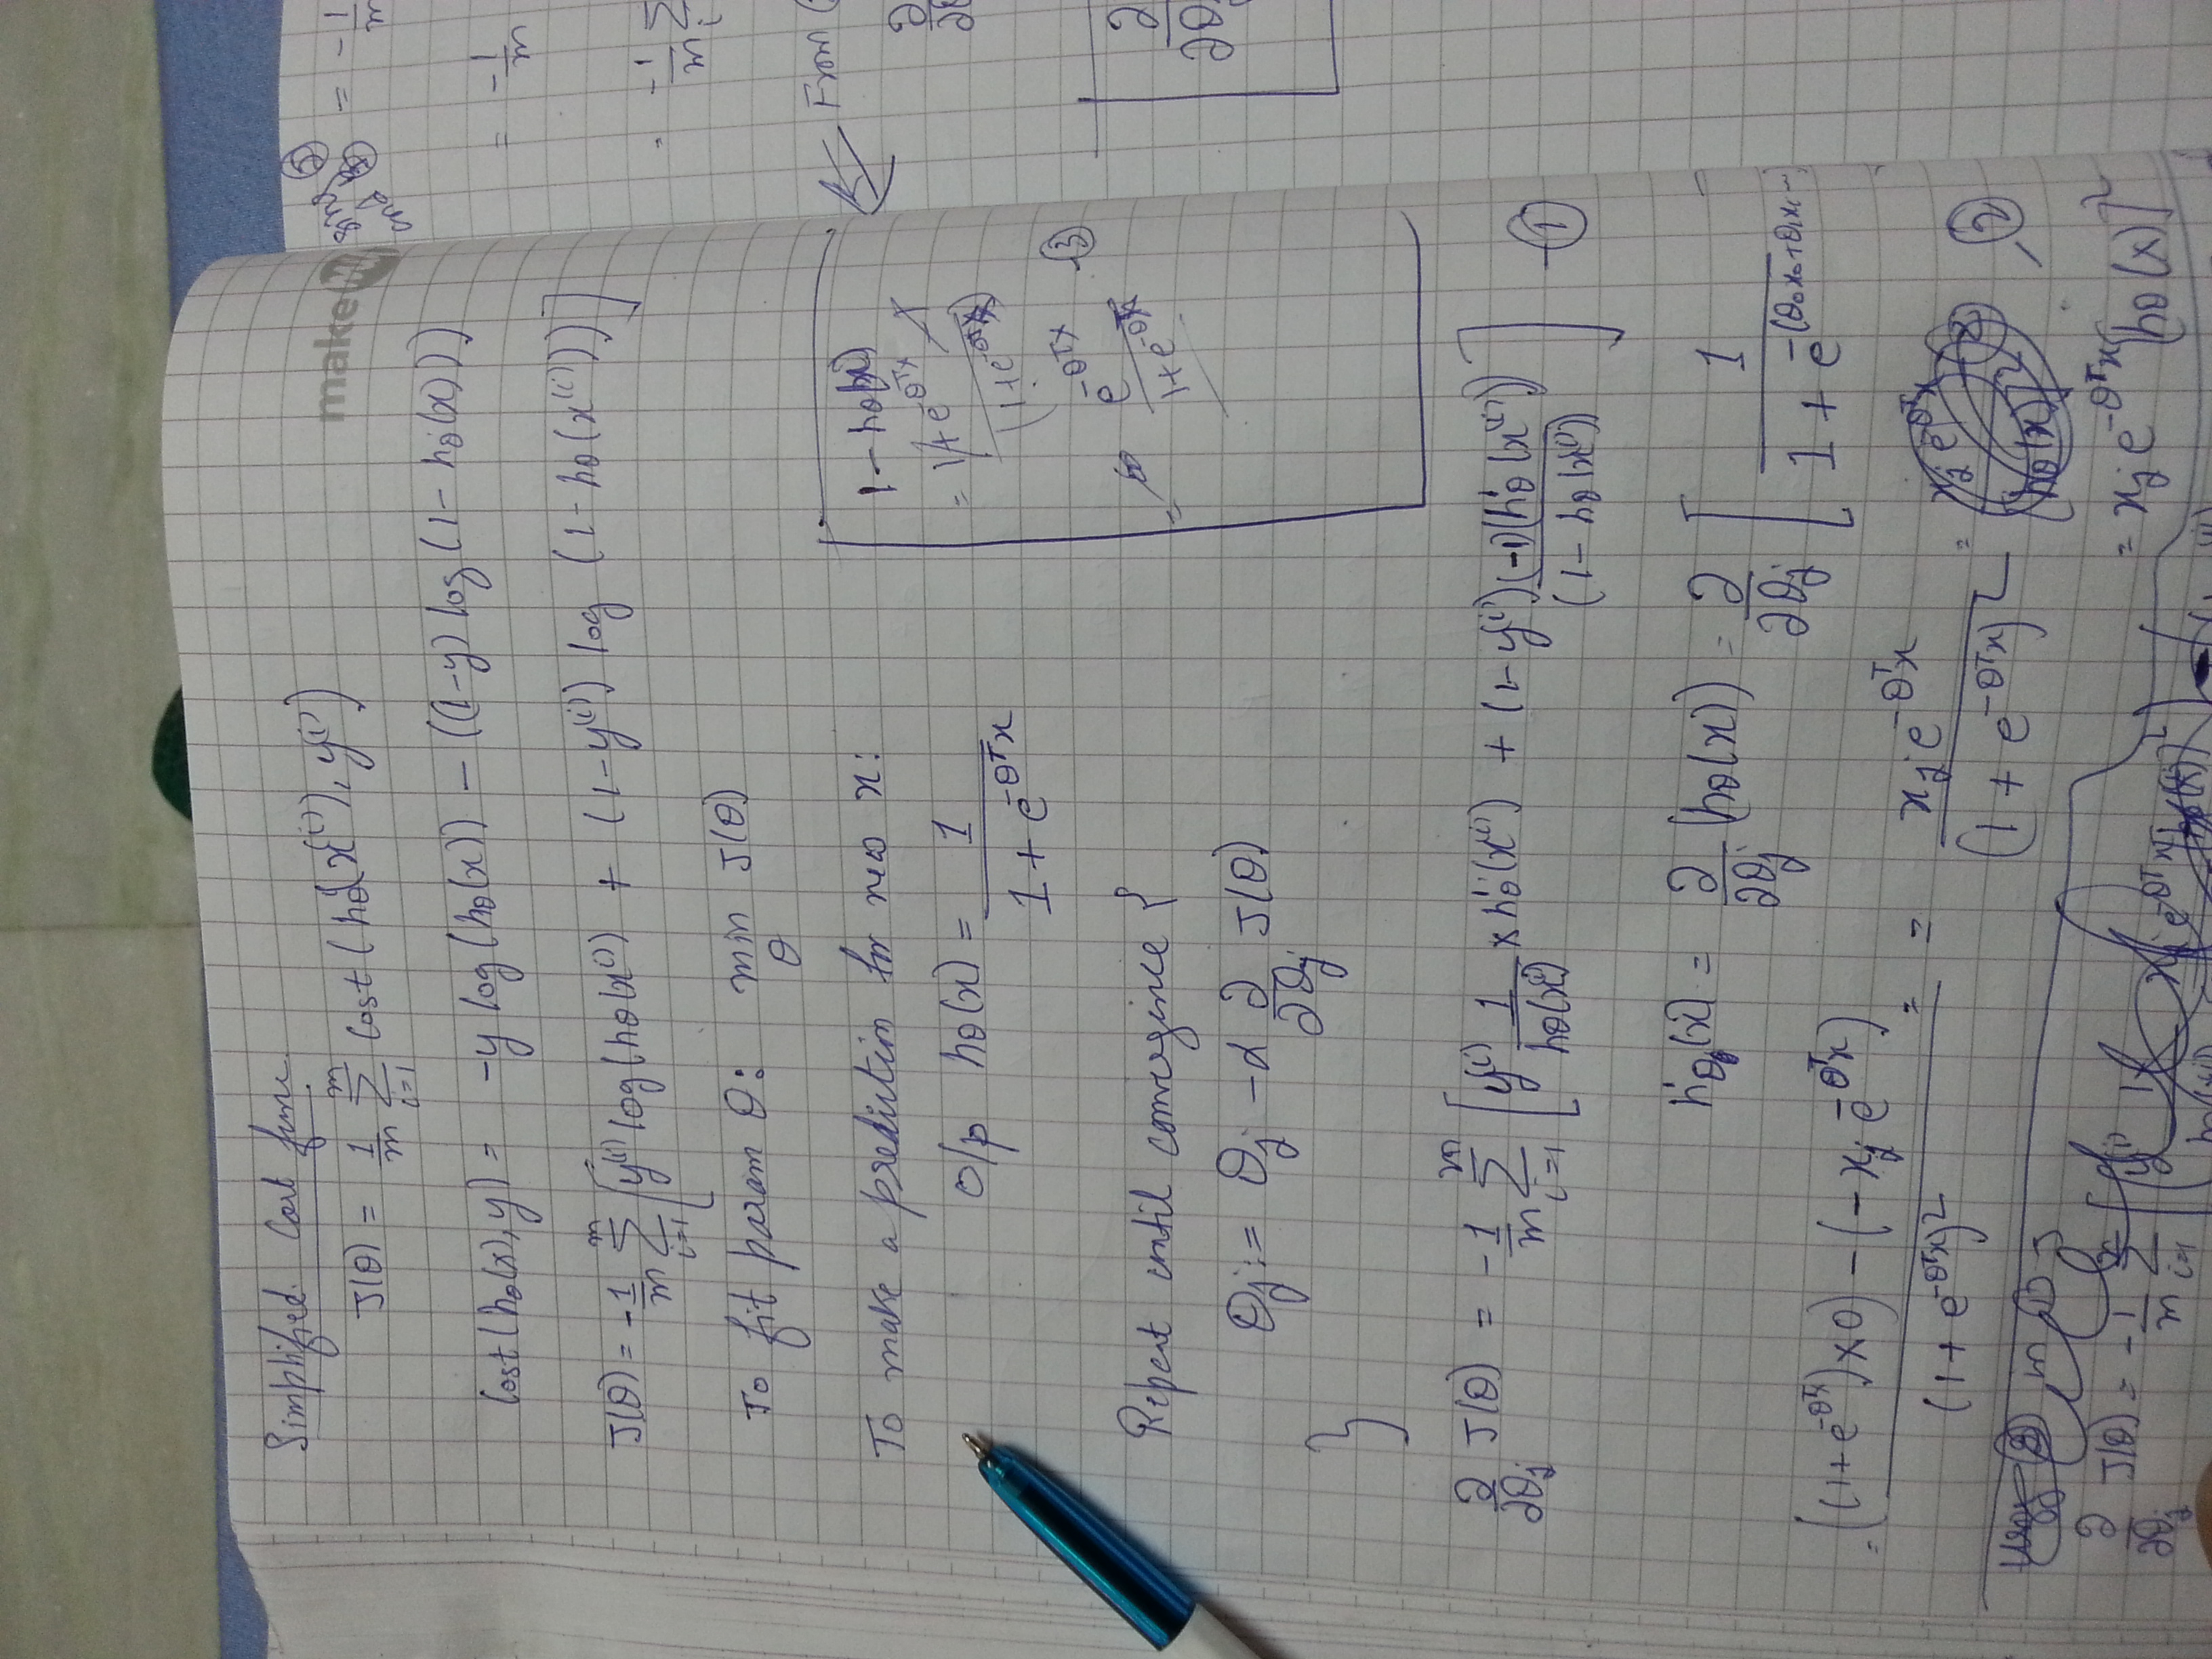 Simplified Cost func
J(θ) = 1/m Σ_{i=1}^{m} Cost(hθ(x^(i)), y^(i))
Cost(hθ(x), y) = -y log(hθ(x)) - ((1-y) log(1-hθ(x)))
J(θ) = -1/m Σ_{i=1}^{m} [y^(i) log(hθ(x^(i)) + (1-y^(i)) log (1-hθ(x^(i)))]
To fit param θ: min_θ J(θ)
To make a prediction for new x:
O/p hθ(x) = 1/(1 + e^{-θ^T x})
Repeat until convergence {
θj := θj - α ∂/∂θj J(θ)
}
1 - hθ(x)
= (1 + e^{-θ^T x} - 1)/(1 + e^{-θ^T x})
= e^{-θ^T x}/(1 + e^{-θ^T x}) - ③
∂/∂θj J(θ) = -1/m Σ_{i=1}^{m} [y^(i) 1/hθ(x^(i)) × h'θ(x^(i)) + (1-y^(i)) (-1)(h'θ(x^(i)))/(1-hθ(x^(i)))] - ①
h'θ(x) = ∂/∂θj (hθ(x)) = ∂/∂θj [1/(1 + e^{-(θ0x0+θ1x1-
= (((1+e^{-θ^T x})×0) - (-xj e^{-θ^T x}))/(1 + e^{-θ^T x})^2 = = xj e^{-θ^T x}/(1 + e^{-θ^T x})^2 = - ②
= xj e^{-θ^T x} [hθ(x)]^2
∂/∂θj J(θ) = -1/m Σ_{i=1}
make
and = -1/m
= -1/m
= -1/m Σ_i
From
∂/∂θ
∂/∂θ